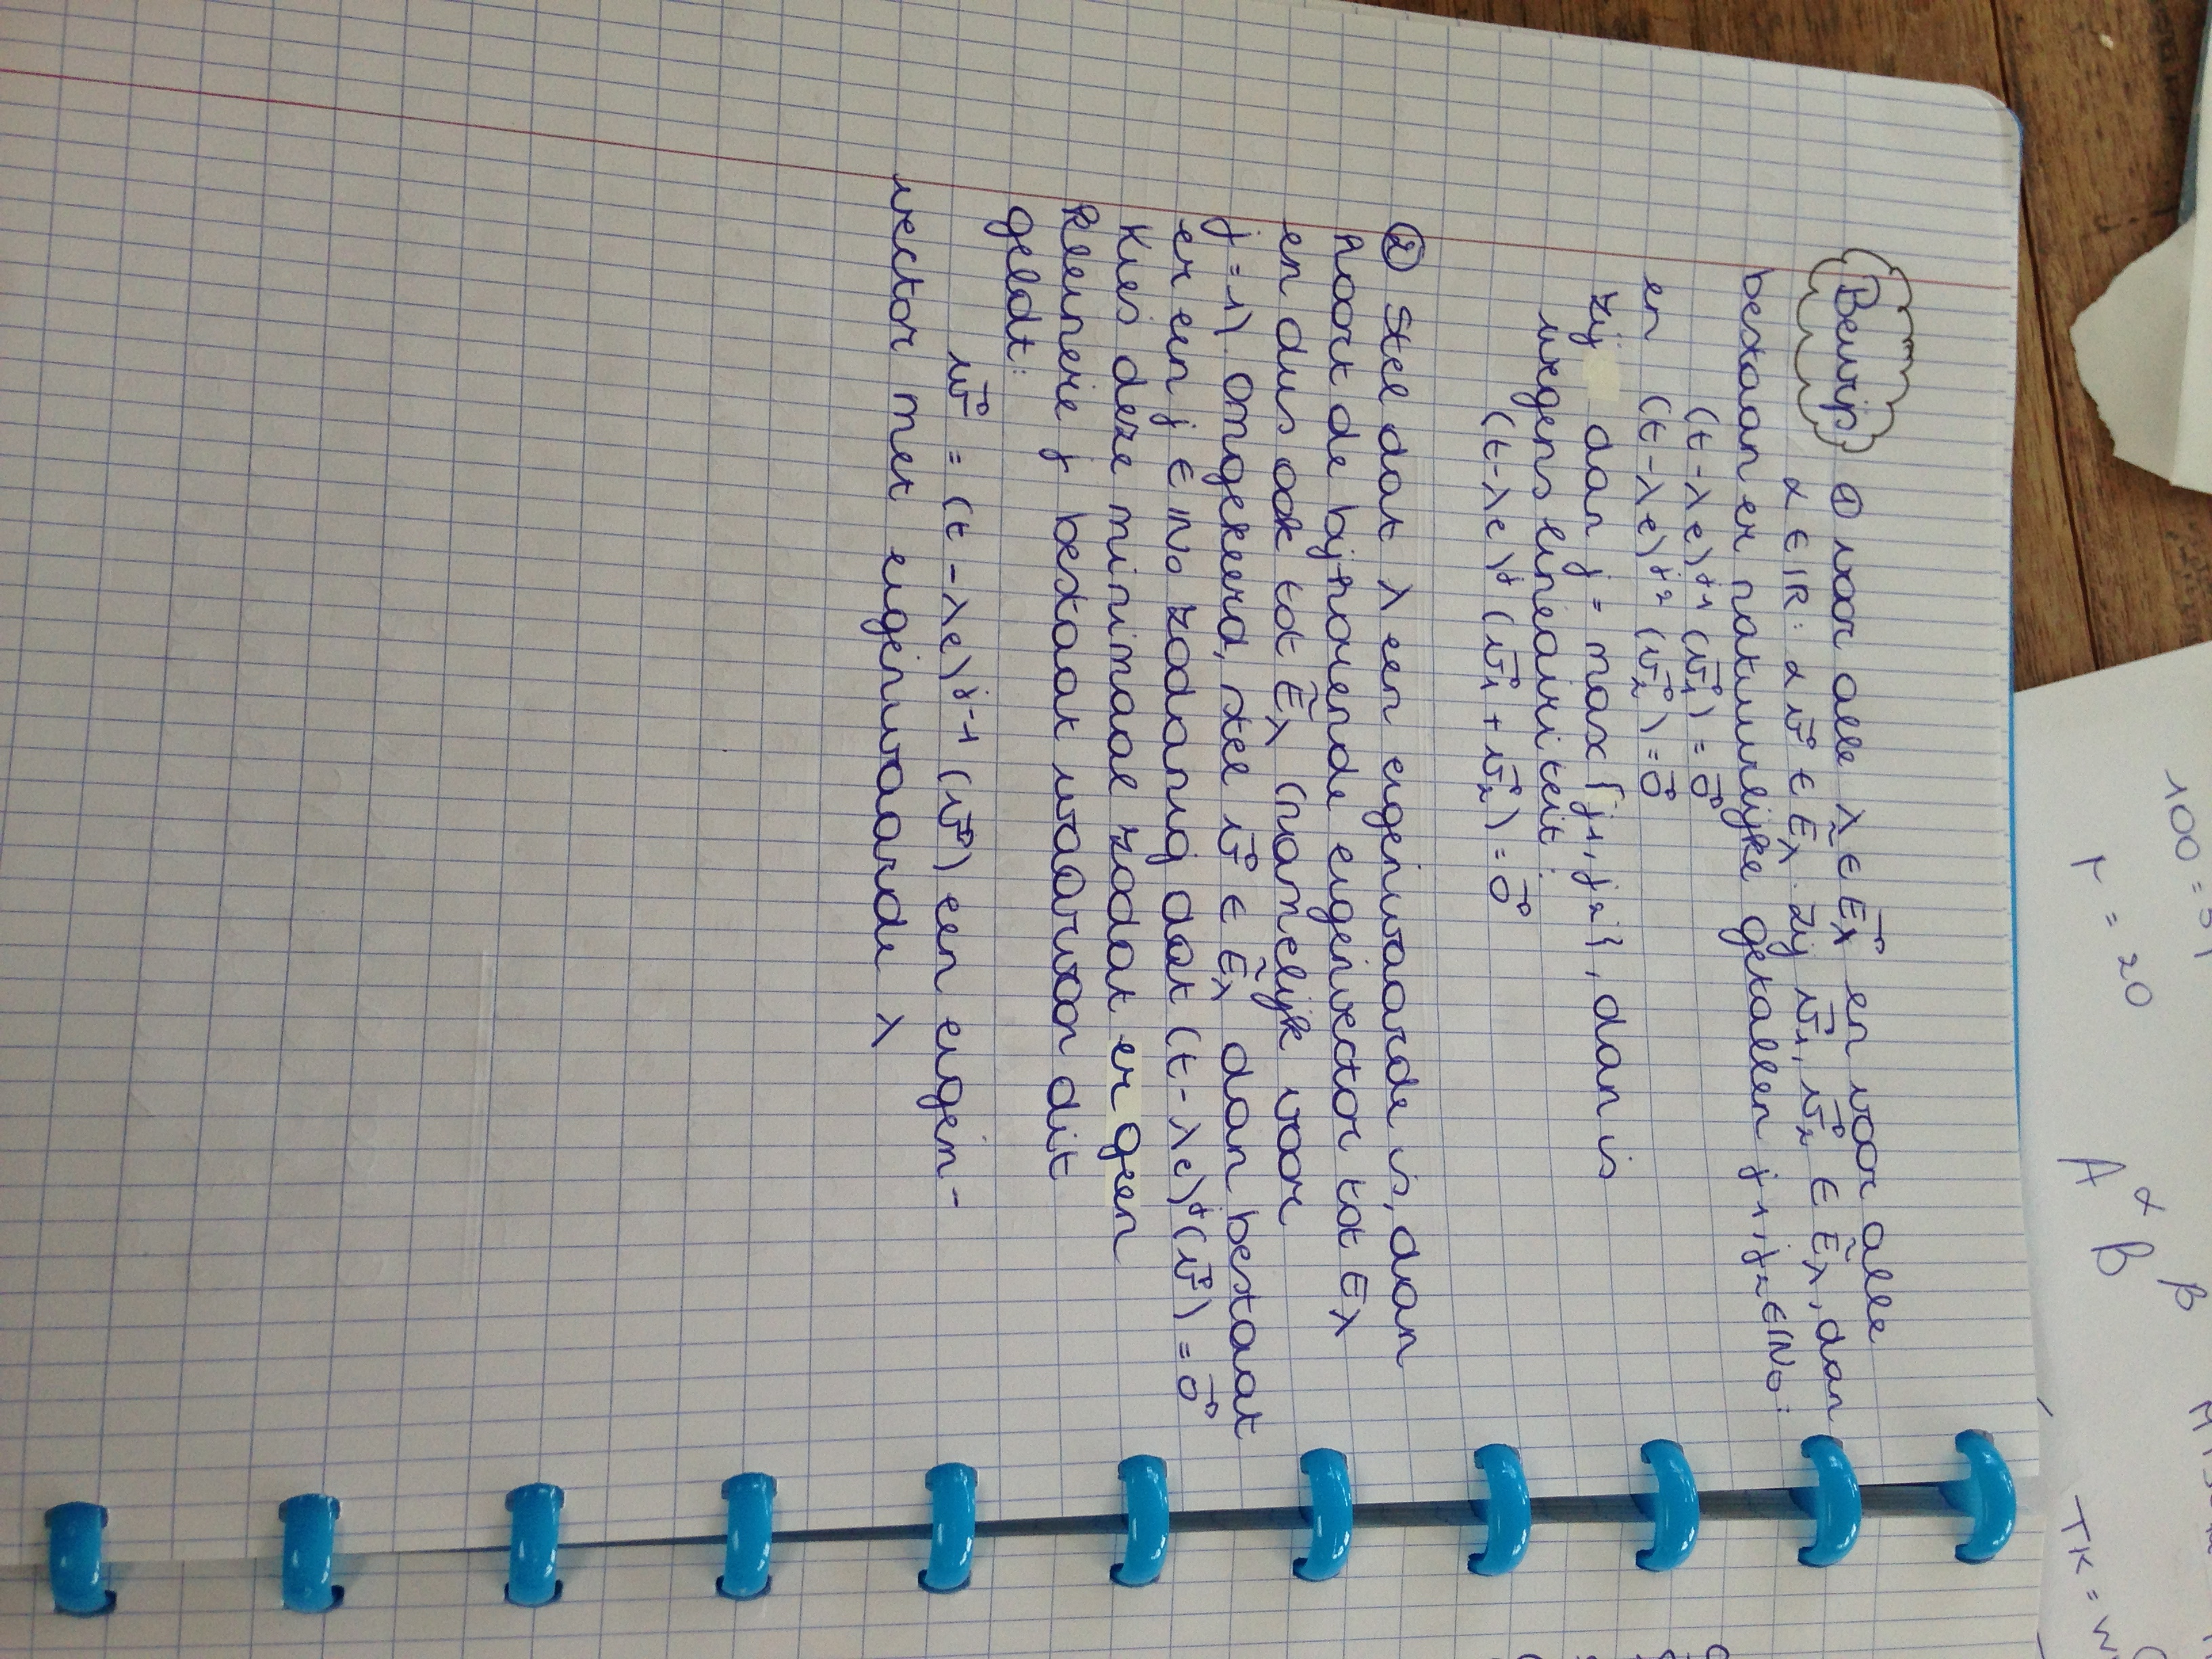 Bewijs ① voor alle λ ∈ E⃗λ en voor alle
α ∈ ℝ: α v⃗ ∈ Ẽλ. Zij v⃗₁, v⃗₂ ∈ Ẽλ, dan
bestaan er natuurlijke getallen j₁, j₂ ∈ ℕ₀:
(t-λe)^j₁ (v⃗₁) = o⃗
en (t-λe)^j₂ (v⃗₂) = o⃗
zij dan j = max{j₁, j₂}, dan is
wegens lineairiteit:
(t-λe)^j (v⃗₁ + v⃗₂) = o⃗
② Stel dat λ een eigenwaarde is, dan
hoort de bijhorende eigenvector tot Eλ
en dus ook tot Ẽλ (namelijk voor
j = 1). Omgekeerd, stel v⃗ ∈ Ẽλ dan bestaat
er een j ∈ ℕ₀ zodanig dat (t-λe)^j (v⃗) = o⃗
Kies deze minimaal zodat er geen
kleinere j bestaat waarvan dit
geldt:
w⃗ = (t-λe)^j-1 (v⃗) een eigen-
vector met eigenwaarde λ
100 =
r = 20
A α B β
TK = W